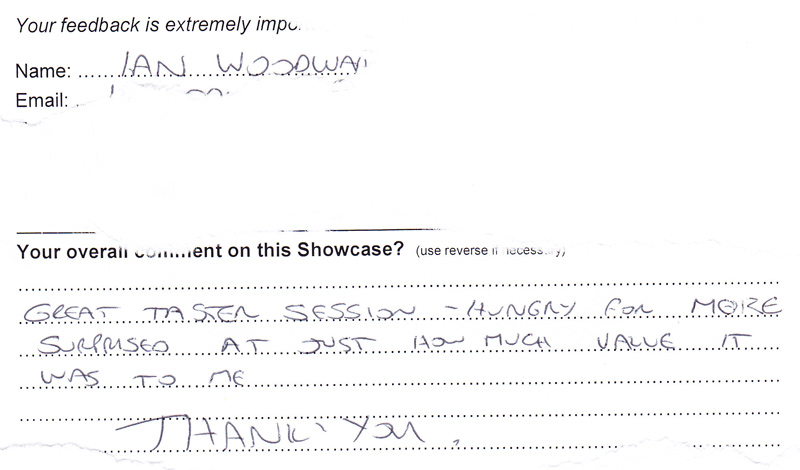 Your feedback is extremely
Name: IAN
Email:
Your overall comment on this Showcase? (use reverse if necessary)
GREAT TASTER SESSION - HUNGRY FOR MORE
SURPRISED AT JUST HOW MUCH VALUE IT
WAS TO ME
THANK YOU